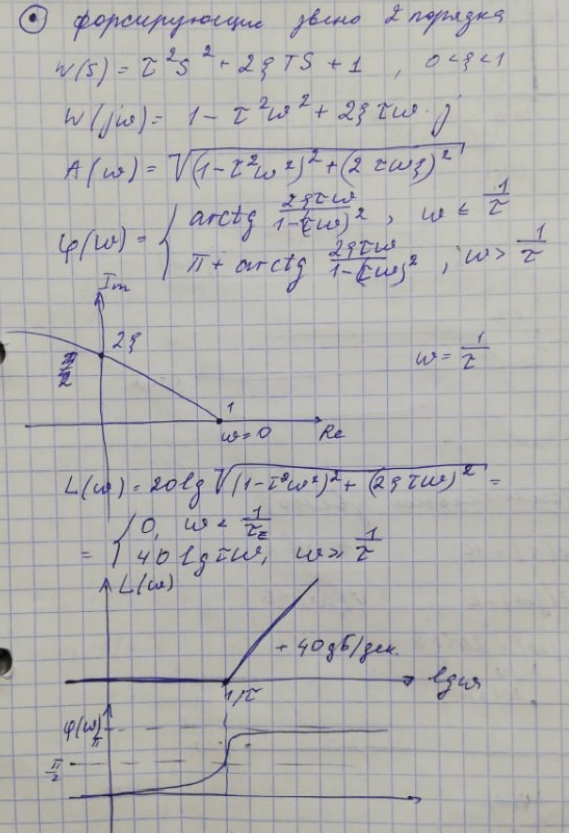 форсирующие звено 2 порядка
W(s) = τ²s² + 2ξTS + 1 , 0<ξ<1
W(jω) = 1 - τ²ω² + 2ξτω·j
A(ω) = √((1-τ²ω²)² + (2τωξ)²)
φ(ω) = { arctg 2ξτω/1-(τω)² , ω ≤ 1/τ
π + arctg 2ξτω/1-(τω)² , ω > 1/τ
Im
2ξ
π/2
ω = 1/τ
1
ω=0 Re
L(ω) = 20lg √((1-τ²ω²)² + (2ξτω)²) =
= { 0, ω < 1/τ
40lgτω, ω ≥ 1/τ
L(ω)
+40дБ/дек.
1/τ lgω
φ(ω) π
π/2